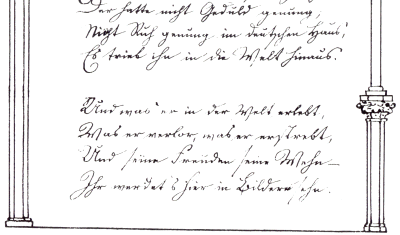 Der hatte nicht Geduld genung,
Nicht Ruh genung im deutschen Haus,
Es trieb ihn in die Welt hinaus.
Und was er in der Welt erlebt,
Was er verlor, was er erstrebt,
Und seine Freuden seine Wehn
Ihr werdet's hier in Bildern sehn.